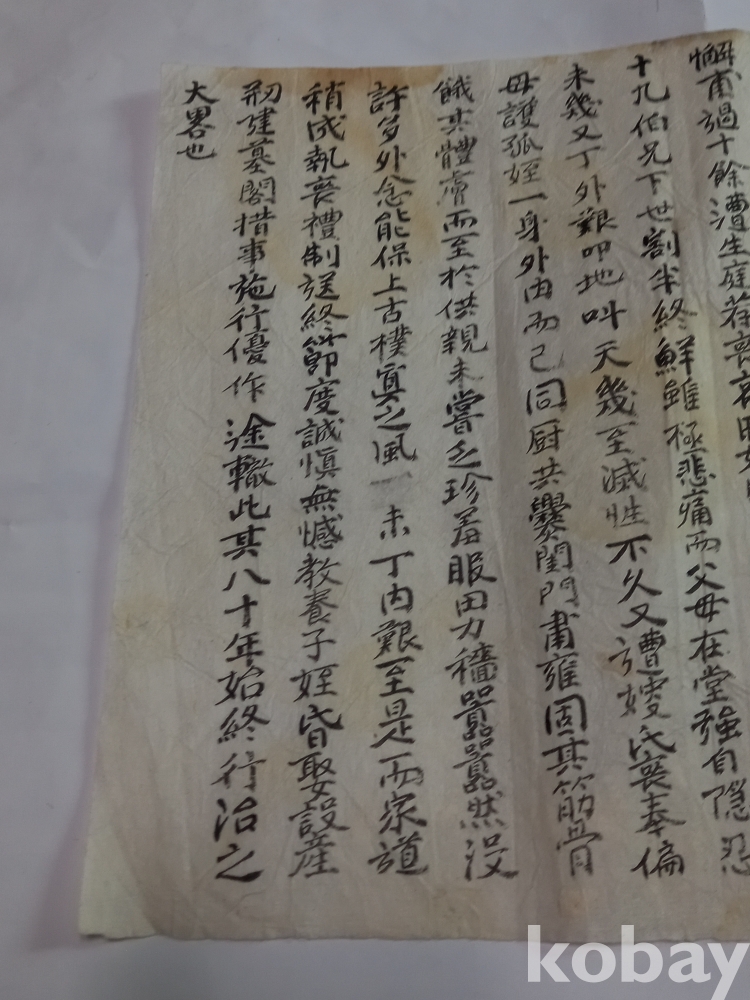 懈甫過十餘漕生庭荐喪
十九伯兄下世割半終鮮雖極悲痛而父母在堂強自隱忍
未幾又丁外艱叩地叫天幾至滅性不久又遭嫂氏喪奉偏
母護孤姪一身外內而已同厨共爨閨門肅雍固其筋骨
餓其體膚而至於供親未嘗乏珍羞服田力穡囂囂然沒
許多外念能保上古樸寘之風 未丁內艱至是而家道
稍成執喪禮制送終節度誠愼無憾敎養子姪昏娶設產
刱建墓閣措事施行優作途轍此其八十年始終行治之
大畧也
kobay